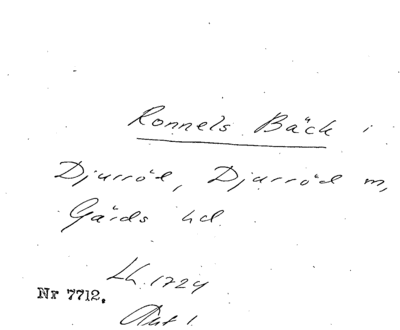 Ronnels Bäck i
Djurröd, Djurröd m,
Gärds hd
Lk. 1724
Nr 7712.
Akt 1.